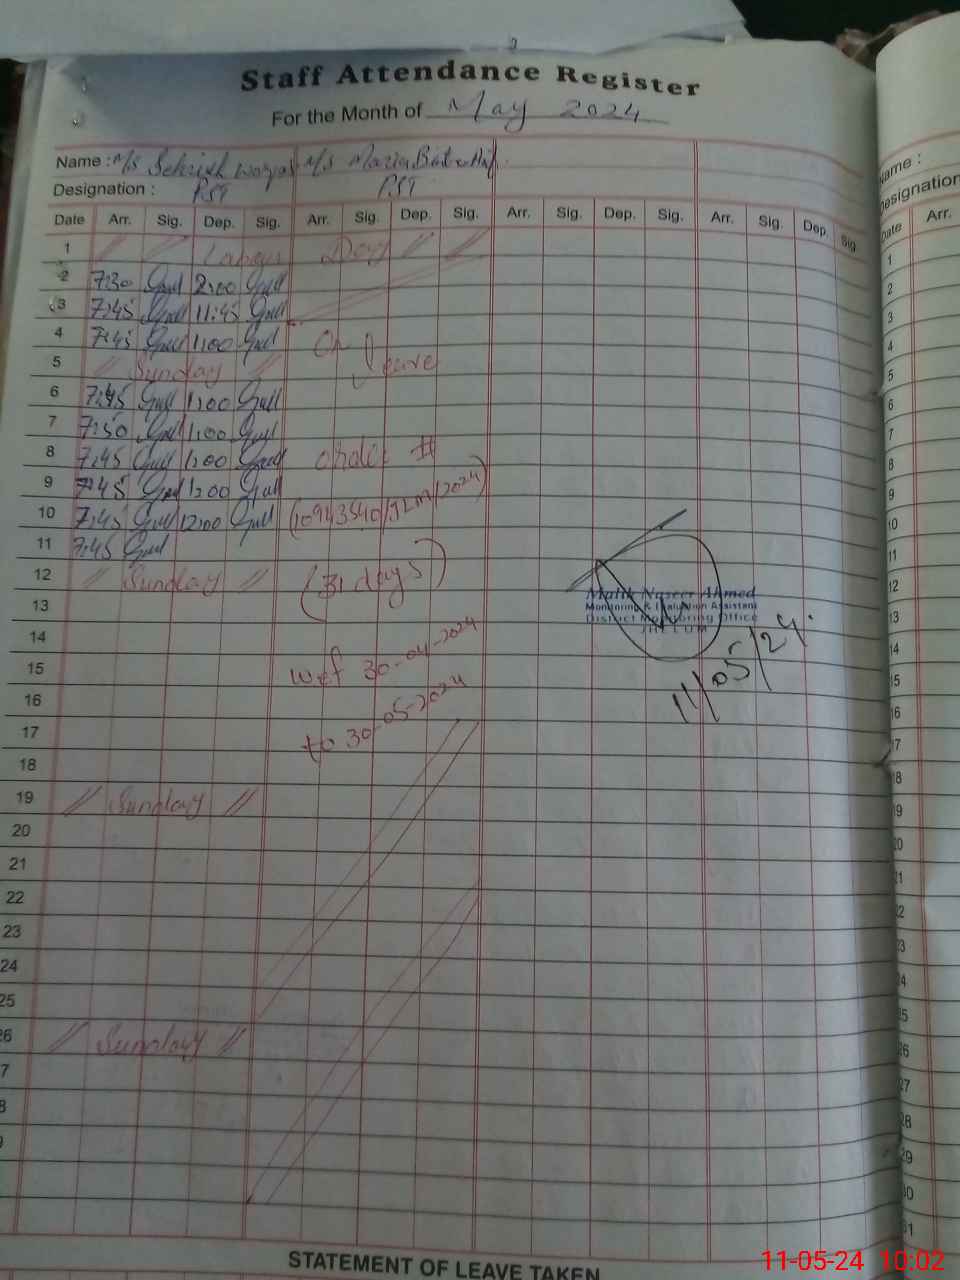 Staff Attendance Register
For the Month of May 2024
Name : M/s Sehrish M/s Maria
Designation : PST PST
Date Arr. Sig. Dep. Sig. Arr. Sig. Dep. Sig. Arr. Sig. Dep. Sig. Arr. Sig. Dep. Sig.
1 // Labour Day //
2 7:30 2:00
3 7:45 11:45
4 7:45 1:00 On leave
5 // Sunday //
6 7:45 1:00
7 7:50 1:00
8 7:45 1:00 order #
9 7:45 1:00
10 7:45 12:00 (10943540/JLM/2024)
11 7:45
12 // Sunday // (31 days)
13
14
15 wef 30-04-2024
16
17 to 30-05-2024
18
19 // Sunday //
20
21
22
23
24
25
26 // Sunday //
7
8
9
Malik Naseer Ahmed
Monitoring & Evaluation Assistant
District Monitoring Office
JHELUM
11/05/24.
STATEMENT OF LEAVE TAKEN
Name :
Designation
Date Arr.
1
2
3
4
5
6
7
8
9
10
11
12
13
14
15
16
17
18
19
20
21
22
23
24
25
26
27
28
29
30
31
11-05-24 10:02